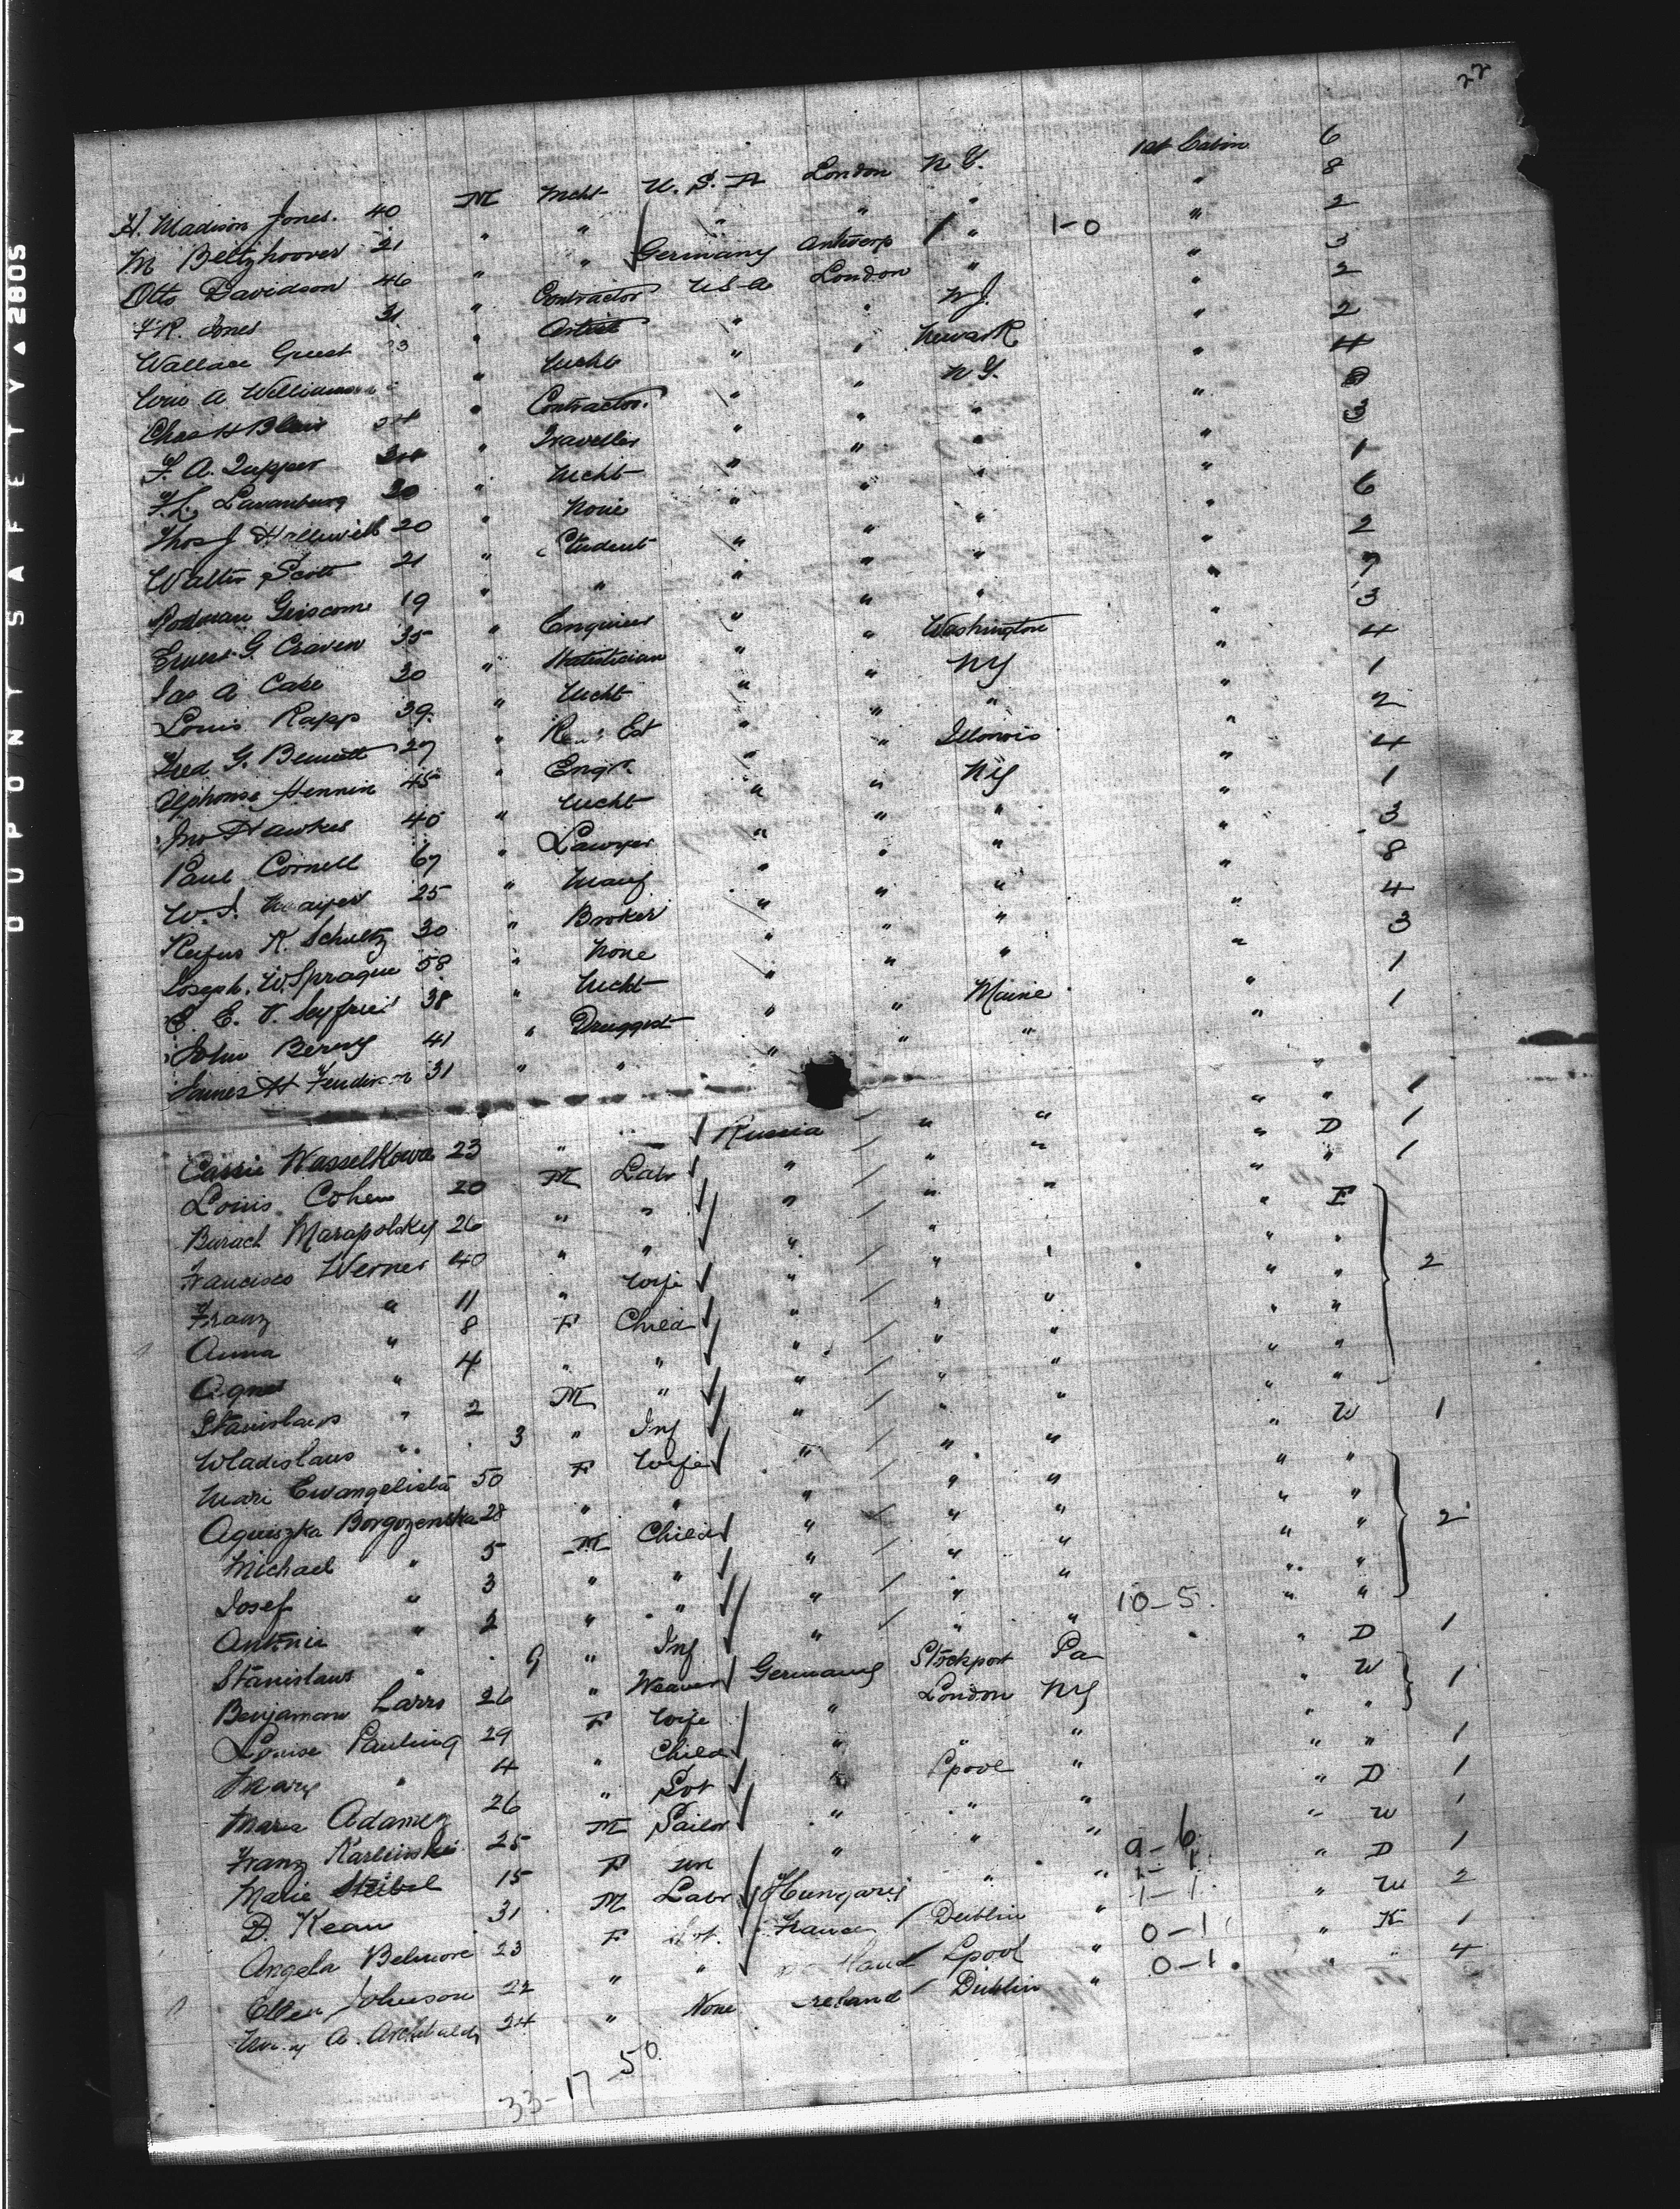 22
H. Madison Jones. 40 M Mcht U.S.A London N.Y. 1st Cabin 6
M Beltzhoover 21 " " " " " " 8
Otto Davidson 46 " " Germany Antwerp / " 1-0 " 2
F.R. Jones 31 " Contractor U S A London " " 3
Wallace Guest 23 " Artist " " N.J. " 2
A Williamson " Mcht " " Newark " 2
Chas H Blair " Contractor. " " N.Y. " 4
F. A. Tupper " Traveller " " " "
F.L. Lavanburg 30 " Mcht " " " " 3
Thos J 20 " None " " " " 1
Walter Scott 21 " Student " " " " 6
Rodman Griscom 19 " " " " " " 2
Ernest G. Craven 35 " Engineer " " Washington " 7
Jas A Case 30 " Statistician " " NY " 3
Louis Rapp 39 " Mcht " " " " 4
Fred G. Bennett 27 " Est " " Illonois " 1
Alphonse Hennin 45 " Engr. " " NY " 2
Jno Hawkes 40 " Mcht " " " " 4
Paul Cornell 67 " Lawyer " " " " 1
W. J. 25 " Manf " " " " 3
Rufus K. Schultz 30 " Broker " " " " 8
Joseph. W. Sprague 58 " None " " " " 4
E. V. Seyfried 38 " Mcht " " " " 3
John Berry 41 " Druggist " " Maine " 1
James H 31 " " " " " " 1
Cassie Wasselkowa 23 " Russia / " " " " 1
Louis Cohen 20 M Labr " / " " " D 1
Burach Marapolsky 26 " " " / " " " " 1
Francisco Werner 40 " " " " " " E
Franz " 11 " Wife " / " " " "
Anna " 8 F Child " " " " "
Agnes " 4 " " " / " " " " 2
Stanislaus " 2 M " " / " " " "
Wladislaus " 3 " Inf " / " " " "
Mari Ewangelista 50 F Wife " / " " " W 1
Agniszka Borgozenska 28 " " " / " " " "
Michael " 5 M Child " / " " " "
Josef " 3 " " " / " " " " 2
Antonia " 2 " " " / " " " "
Stanislaus " 9 " Inf " / " " 10-5. " "
Benjaman Larrs 26 " Weaver Germany Stockport Pa " D 1
Louise Pauling 29 F Wife " London NY " W
Mary " 4 " Child " " " " " 1
Maria Adamez 26 " " Lpool " " " 1
Franz 25 M Sailor " " " " D 1
Marie Steibel 15 F " " " 9-6 " W 1
D. Kean 31 M Labr Hungary " " 1-1. " D 1
Angela Belmore 23 F France / Dublin " 1-1. " W 2
Ellen Johnson 22 " " / Lpool " 0-1 " K 1
A. Archibald 24 " None / Dublin " 0-1. " " 4
33-17 50
DUPONT SAFETY ▲ 2805